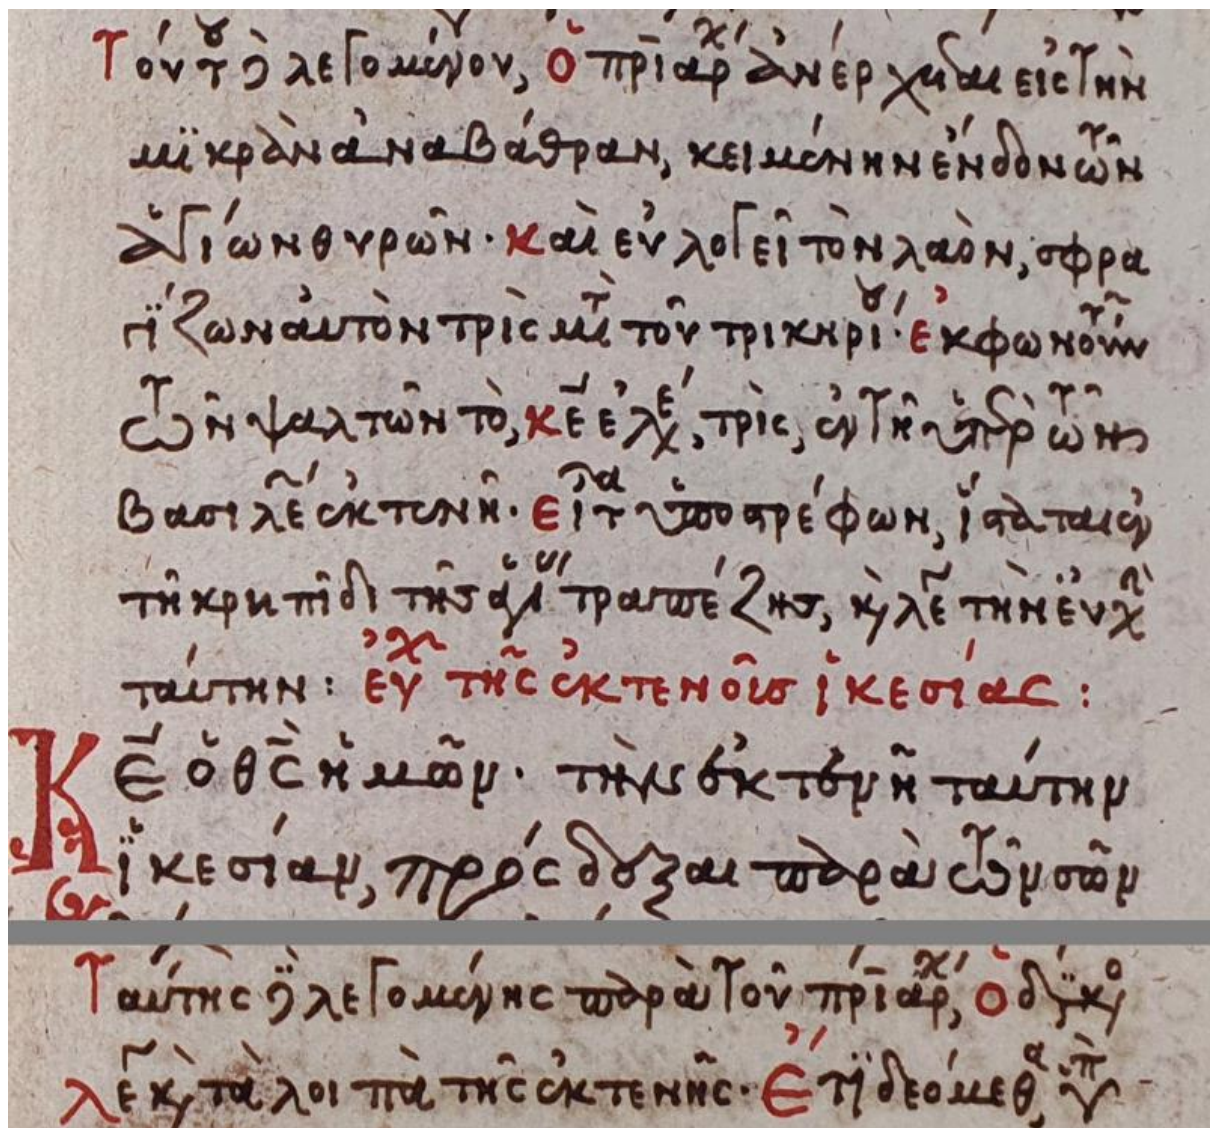 Τούτου δὲ λεγομένου, ὁ πριάρχ ἀνέρχεται εἰς τὴν
μικρὰν ἀναβάθραν, κειμένην ἔνδον τῶν
ἁγίων θυρῶν· καὶ εὐλογεῖ τὸν λαὸν, σφρα
γίζων αὐτὸν τρὶς μετὰ τοῦ τρικηρίου· ἐκφωνούντων
τῶν ψαλτῶν τὸ, κε ἐλέ, τρὶς, ἐν τῇ ὑπὲρ τῶν
βασιλέ ἐκτενῆ· εἶτα ὑποστρέφων, ἵσταται ἐν
τῇ κρηπῖδι τῆς ἁγί τραπέζης, καὶ λέ τὴν εὐχὴ
ταύτην: εὐχ τῆς ἐκτενοῦς ἱκεσίας:
Κε ὁ θς ἡμῶν· τὴν ἐκτενῆ ταύτην
ἱκεσίαν, πρόσδεξαι παρὰ τῶν σῶν
Ταύτης δὲ λεγομένης παρὰ τοῦ πριάρχ, ὁ διάκο
λέ καὶ τὰ λοιπὰ τῆς ἐκτενῆς· Ἔτι δεόμεθα ὑπ